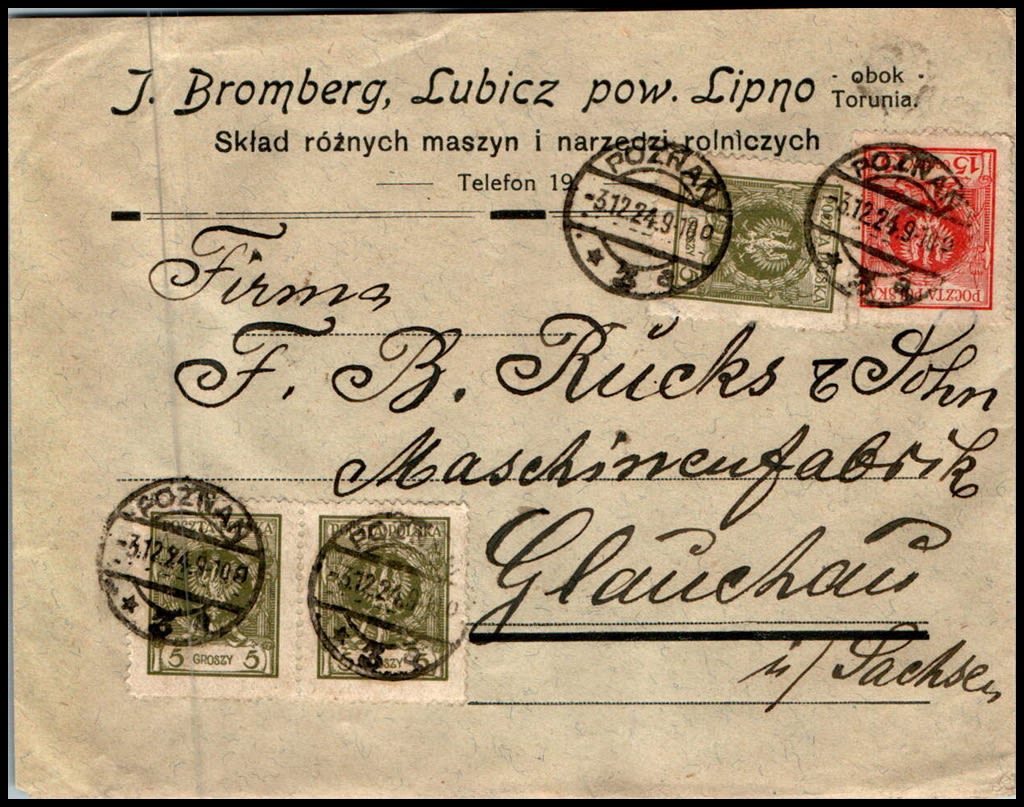 J. Bromberg, Lubicz pow. Lipno - obok - Torunia.
Skład różnych maszyn i narzędzi rolniczych
Telefon 19.
POZNAŃ
-3.12.24.9-10 a
5 GROSZY
POCZTA POLSKA
POZNAŃ
-3.12.24.9-10 a
15
POCZTA POLSKA
Firma
F. B. Rucks & Sohn
Maschinenfabrik
Glauchau
i/ Sachsen
POZNAŃ
-3.12.24.9-10 a
POCZTA POLSKA
5 GROSZY 5
POCZTA POLSKA
-3.12.24.
GROSZY 5